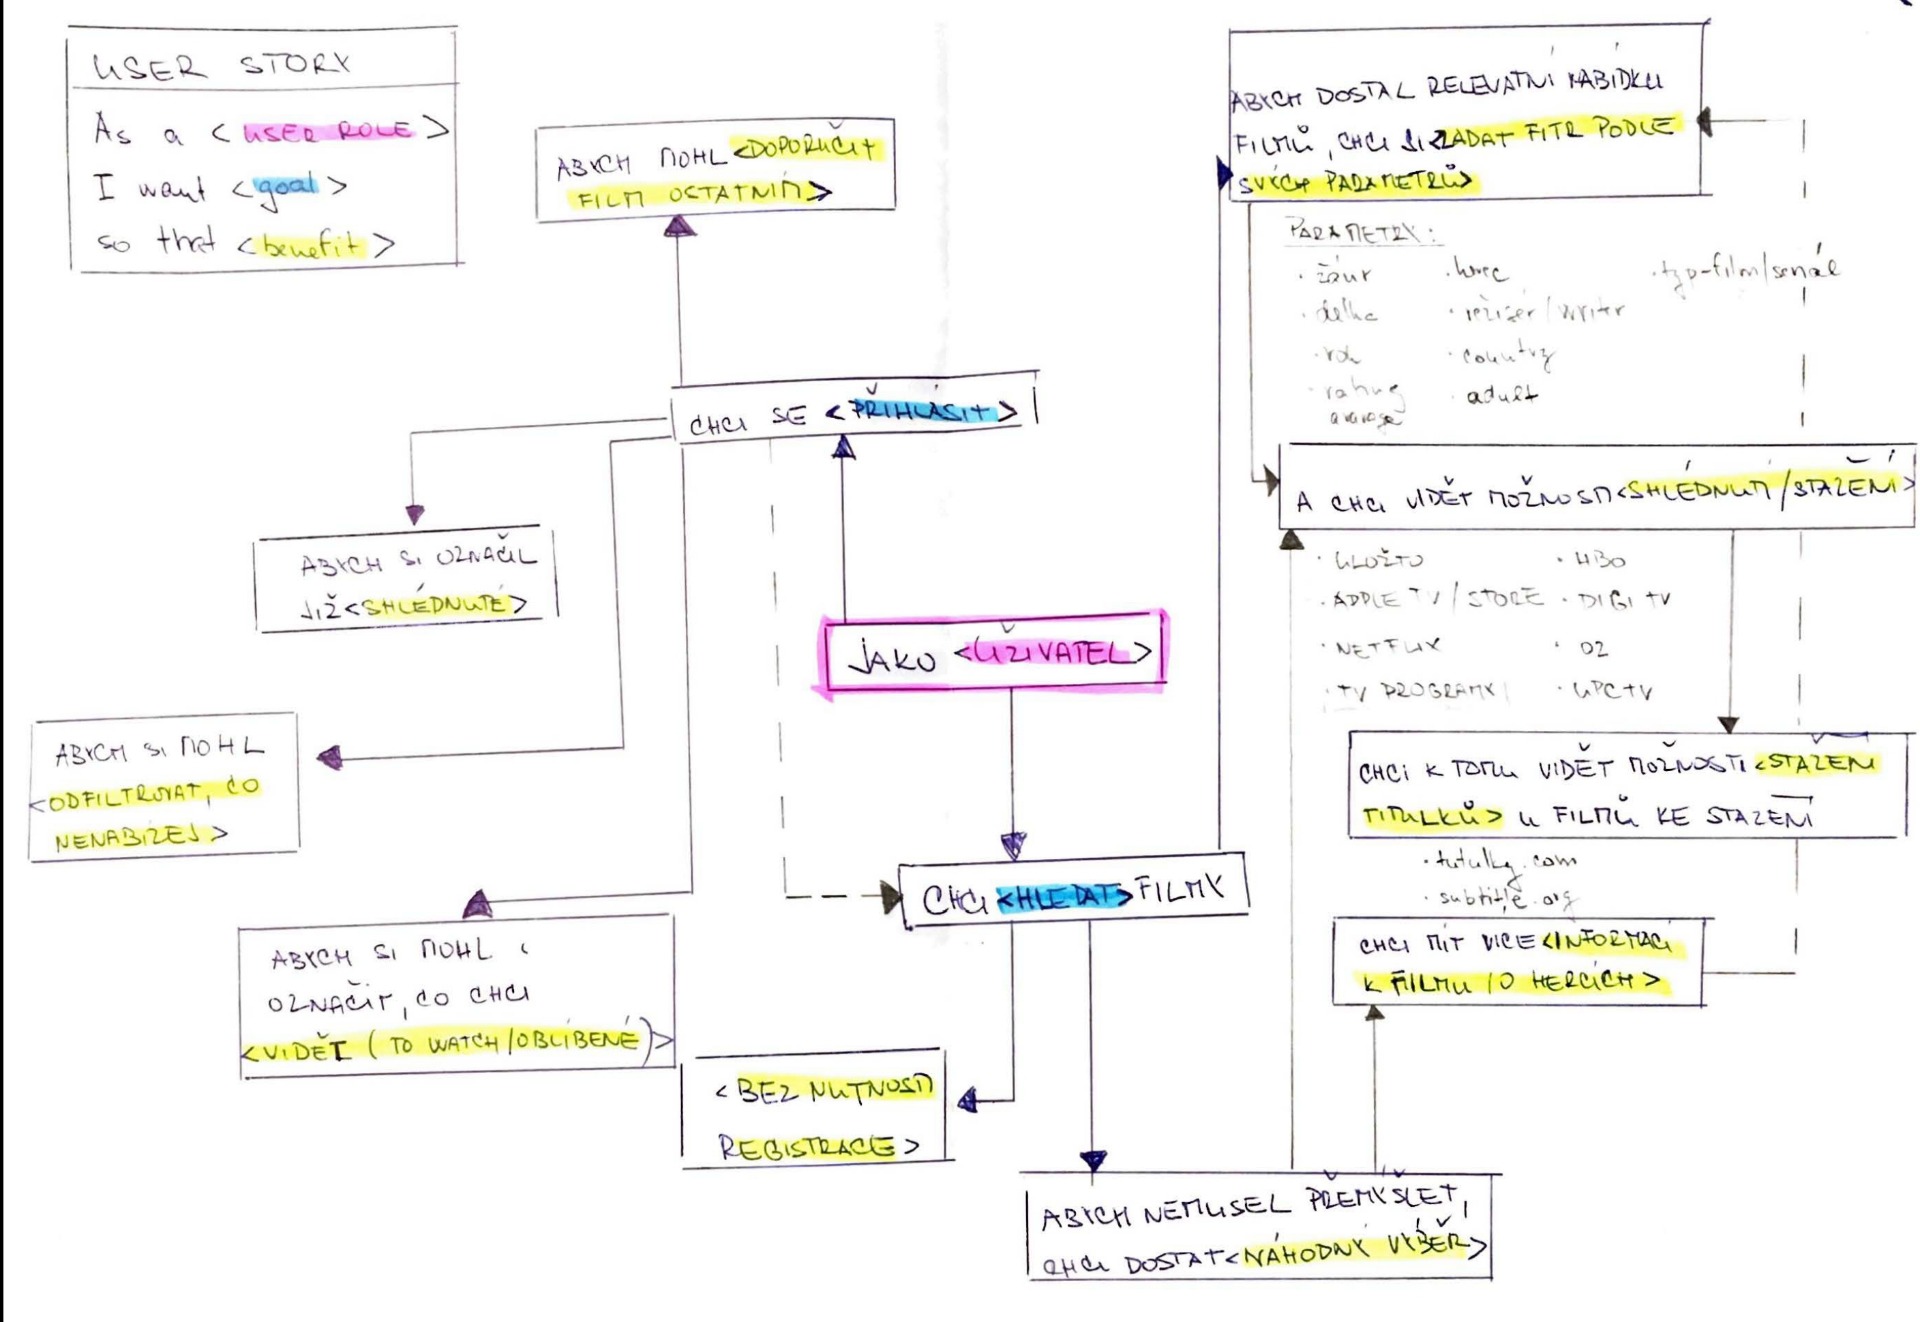 USER STORY
As a <USER ROLE>
I want <goal>
so that <benefit>
ABYCH MOHL <DOPORUČIT
FILM OSTATNÍM>
CHCI SE <PŘIHLÁSIT>
ABYCH SI OZNAČIL
JIŽ <SHLÉDNUTÉ>
JAKO <UŽIVATEL>
ABYCH SI MOHL
<ODFILTROVAT, CO
NENABÍZEJ>
CHCI <HLEDAT> FILMY
ABYCH SI MOHL
OZNAČIT, CO CHCI
<VIDĚT (TO WATCH/OBLÍBENÉ)>
<BEZ NUTNOSTI
REGISTRACE>
ABYCH NEMUSEL PŘEMÝŠLET,
CHCI DOSTAT <NÁHODNÝ VÝBĚR>
ABYCH DOSTAL RELEVATNÍ NABÍDKU
FILMŮ, CHCI SI <ZADAT FITR PODLE
SVÝCH PARAMETRŮ>
PARAMETRY:
· žánr · herec · typ-film/seriál
· délka · režisér/writer
· rok · country
· rating · adult
average
A CHCI VIDĚT MOŽNOSTI <SHLÉDNUTÍ/STAŽENÍ>
· ULOŽTO · HBO
· APPLE TV/STORE · DIGI TV
· NETFLIX · O2
· TV PROGRAMY · UPC TV
CHCI K TOMU VIDĚT MOŽNOSTI <STAŽENÍ
TITULKŮ> U FILMŮ KE STAŽENÍ
· tutulky.com
· subtitle.org
CHCI MÍT VÍCE <INFORMACÍ
K FILMU / O HERCÍCH>